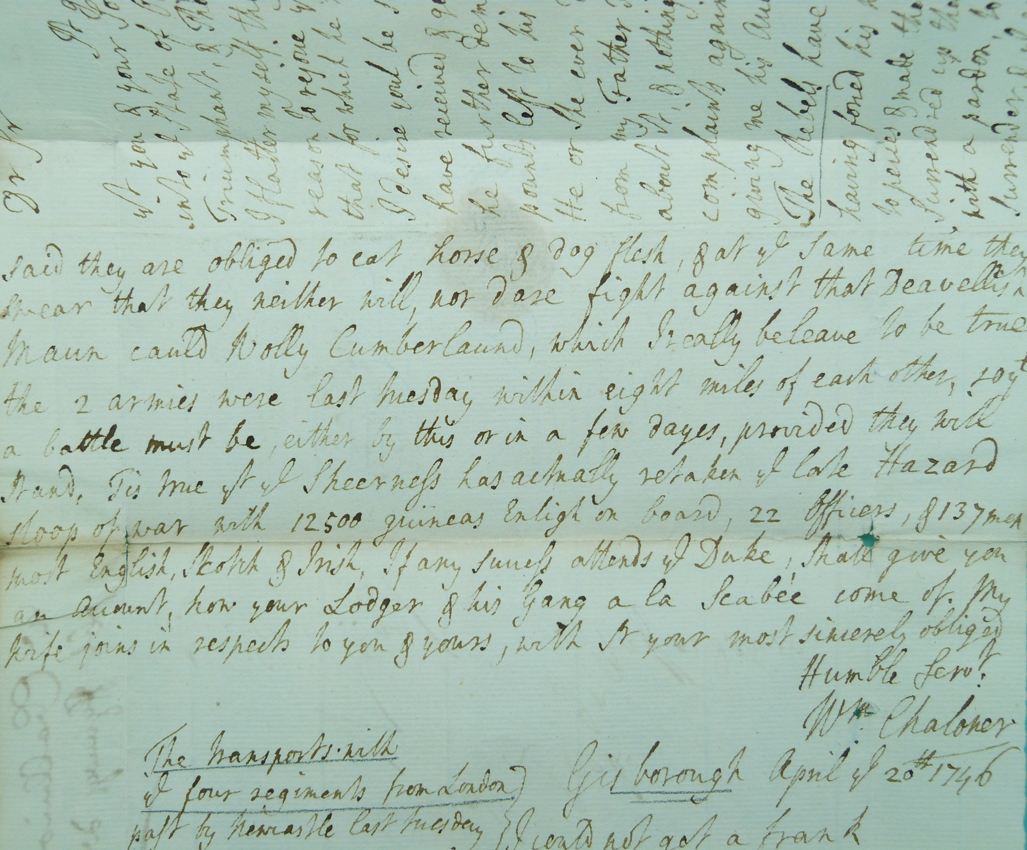 Dr Sr
It
yt you & your
into ye state of
Triumphant, &
I flatter myself
reason to rejoyce
that for which he
I desire youl be
have received
he further
pounds left to his
He or She ever
from my Father
about it, & nothing
complaints
giving me his
The Rebells have
having forced his
to peices & made the
Surrendred up the
with a pardon to
said they are obliged to eat horse & dog flesh, & at ye same time they
swear that they neither will, nor dare fight against that Deavellish
Maun cauld Wolly Cumberlaund, which I really beleave to be true
the 2 armies were last tuesday within eight miles of each other, so yt
a battle must be, either by this or in a few dayes, provided they will
stand, Tis true yt ye Sheerness has actually retaken ye late Hazard
sloop of war with 12500 guineas Enligh on board, 22 Officers, & 137 men
most English, Scotch & Irish, If any success attends ye Duke, shall give you
an Account, how your Lodger & his Gang a la Scabée come of. My
wife joins in respects to you & yours, with Sr your most sincerely obliged
Humble Servt.
Wm. Chaloner
The transports with
ye four regiments from London
past by Newcastle last tuesday
Gisborough April ye 20th 1746
I could not get a frank